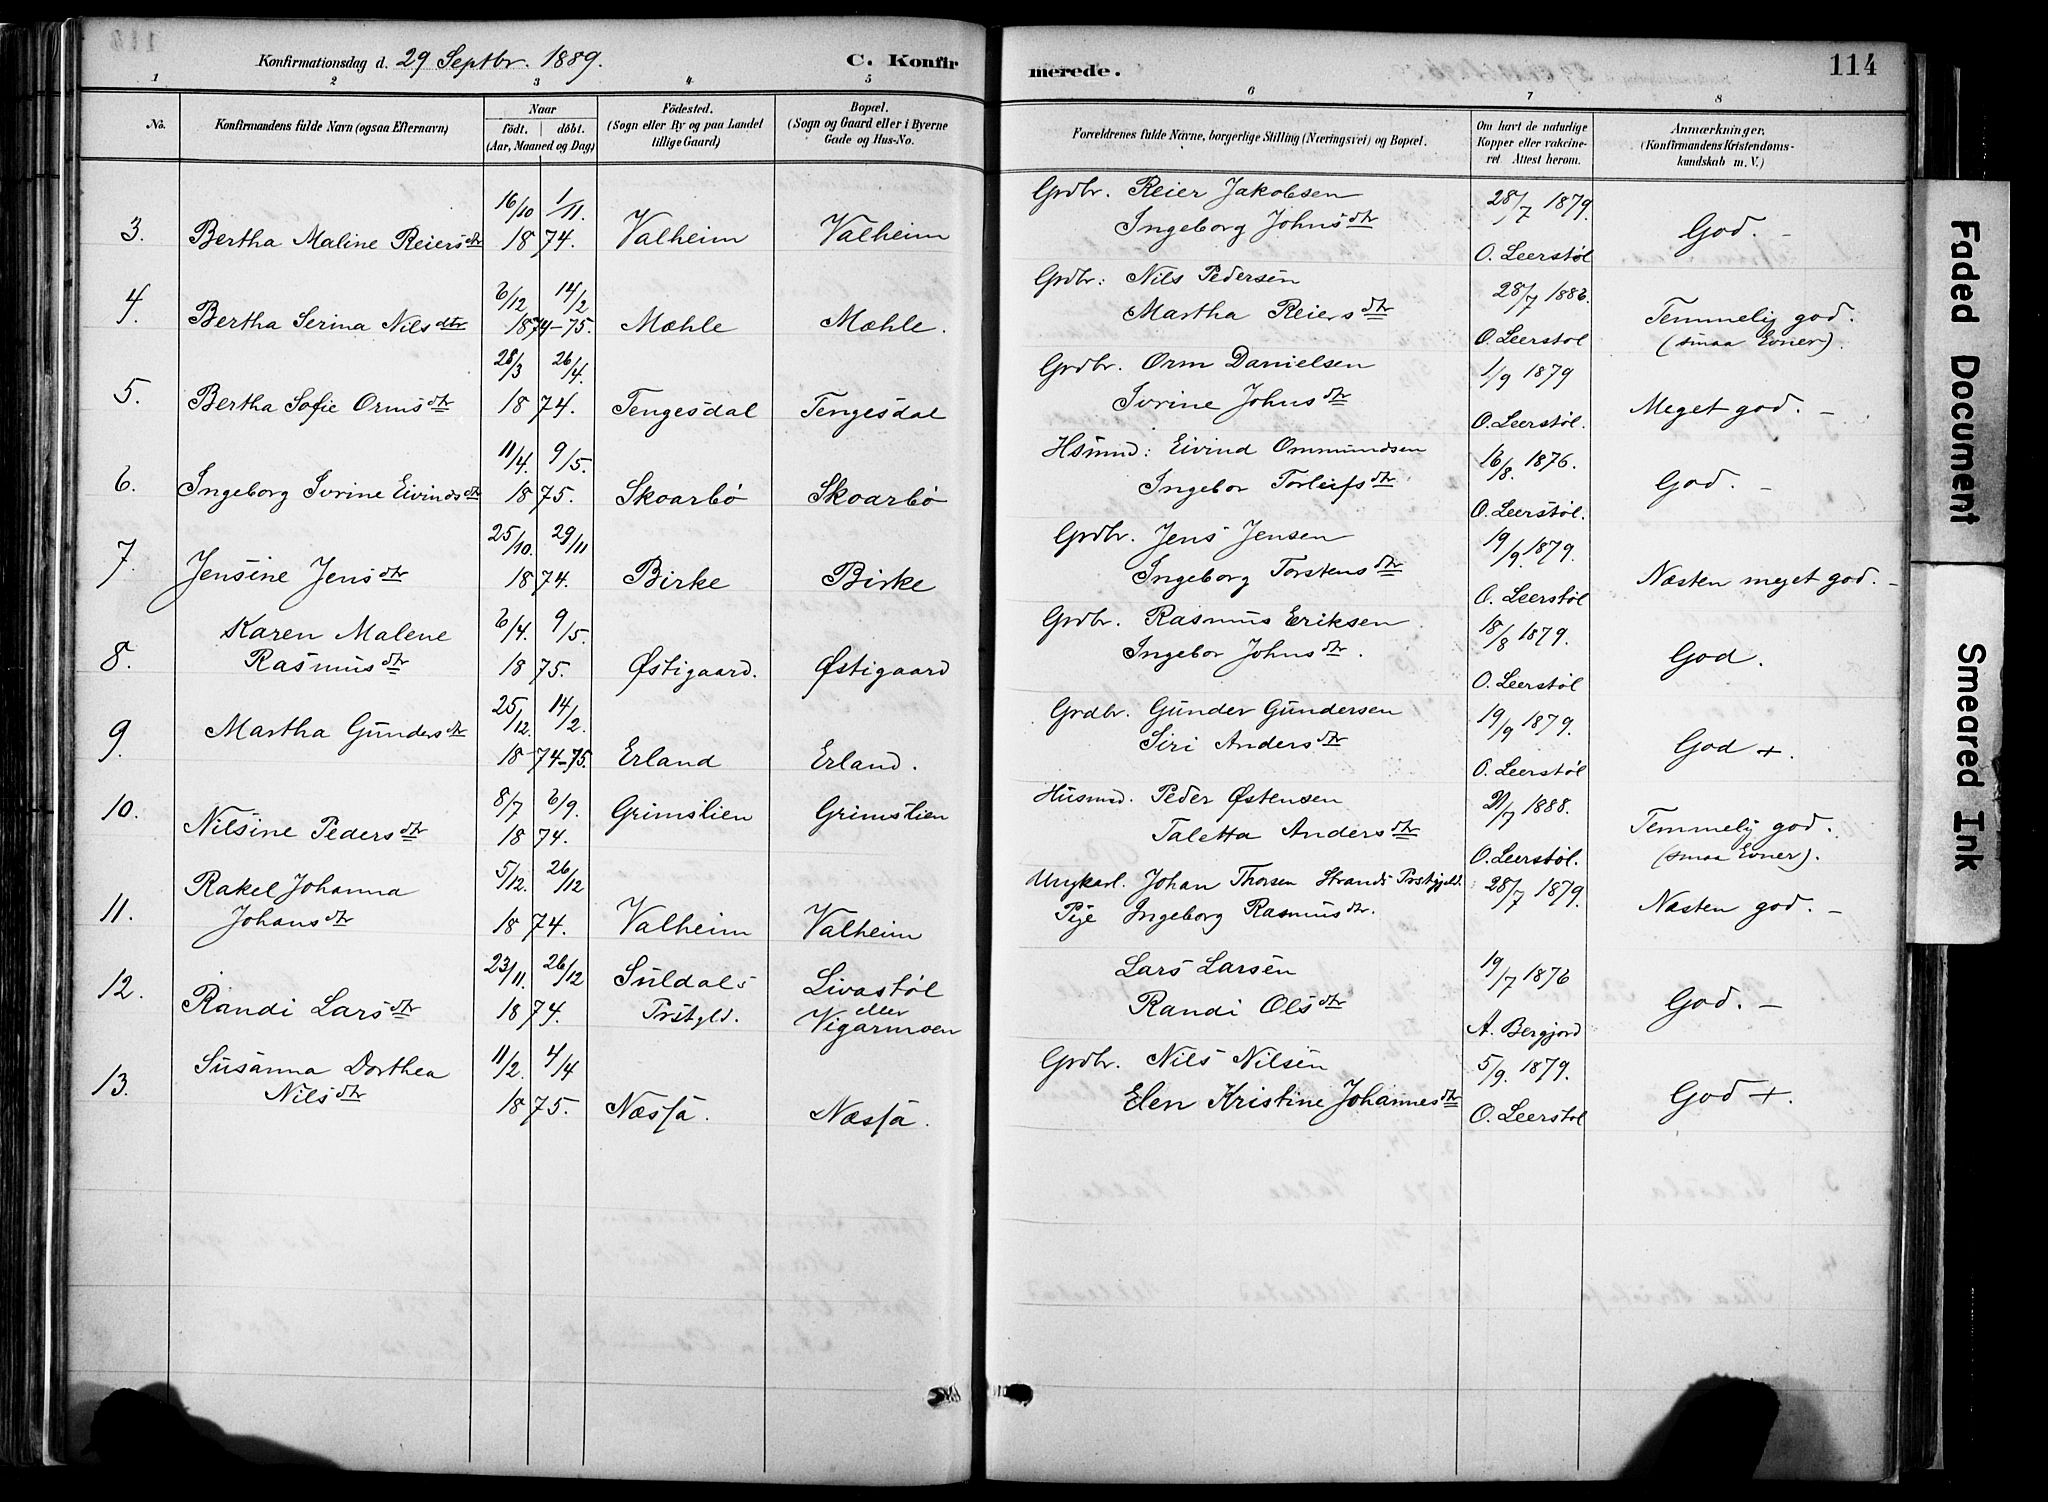 Konfirmationsdag d. 29 Septbr. 1889.
C. Konfirmerede.
114
1 2 3 4 5 6 7 8
No.
Konfirmandens fulde Navn (ogsaa Efternavn)
Naar
födt. | döbt.
(Aar, Maaned og Dag)
Födested.
(Sogn eller By og paa Landet
tillige Gaard)
Bopæl.
(Sogn og Gaard eller i Byerne
Gade og Hus-No.
Forældrenes fulde Navne, borgerlige Stilling (Næringsvei) og Bopæl.
Om havt de naturlige
Kopper eller vakcine-
ret Attest herom.
Anmærkninger.
(Konfirmandens Kristendoms-
kundskab m. V.)
3. Bertha Maline Reiersdtr 16/10 1/11. 1874. Valheim Valheim
Grdbr. Reier Jakobsen
Ingeborg Johnsdtr
28/7 1879.
O. Leerstøl
God. -
4. Bertha Serina Nilsdtr 6/12 14/2 1874-75. Mæhle Mæhle.
Grdbr: Nils Pedersen
Martha Reiersdtr
28/7 1883.
O. Leerstøl
Temmelig god.
(smaa Evner).
5. Bertha Sofie Ormsdtr 28/3 26/4. 1874. Tengesdal Tengesdal
Grdbr. Orm Danielsen
Ivrine Johnsdtr
1/9 1879
O. Leerstøl.
Meget god. -
6. Ingeborg Ivrine Eivindsdtr 11/4. 9/5. 1875. Skoarbö Skoarbö
Hsmnd: Eivind Ommundsen
Ingebor Torleifsdtr
16/8. 1876.
O. Leerstøl.
God. -
7. Jensine Jensdtr 25/10. 29/11 1874. Birke Birke
Grdbr. Jens Jensen
Ingeborg Torstensdtr
19/9. 1879.
O. Leerstøl
Næsten meget god. -
8. Karen Malene
Rasmusdtr 6/4. 9/5. 1875. Østigaard. Østigaard
Grdbr. Rasmus Eriksen
Ingebor Johnsdtr.
18/8 1879.
O. Leerstøl
God.
9. Martha Gundersdtr 25/12. 14/2. 1874-75. Erland Erland.
Grdbr. Gunder Gundersen
Siri Andersdtr
19/9 1879.
O. Leerstøl
God +.
10. Nilsine Pedersdtr 8/7 6/9. 1874. Grimslien Grimslien
Husmd. Peder Østensen
Taletta Andersdtr
21/7 1888.
O. Leerstøl.
Temmelig god.
(smaa Evner).
11. Rakel Johanna
Johansdtr 5/12. 26/12 1874. Valheim Valheim
Ungkarl. Johan Thorsen Strands Prstgjeld.
Pige Ingeborg Rasmusdtr.
28/7 1879.
Næsten god. -
12. Randi Larsdtr 23/11. 26/12 1874. Suldals
Prstgld. Livastøl
eller
Vigarmoen
Lars Larsen
Randi Olsdtr
19/7 1876
A. Bergjord
God. -
13. Susanna Dorthea
Nilsdtr 11/2. 4/4 1875. Næssa. Næssa.
Grdbr. Nils Nilsen
Elen Kristine Johannesdtr
5/9. 1879.
O. Leerstøl
God +.
Faded Document
Smeared Ink